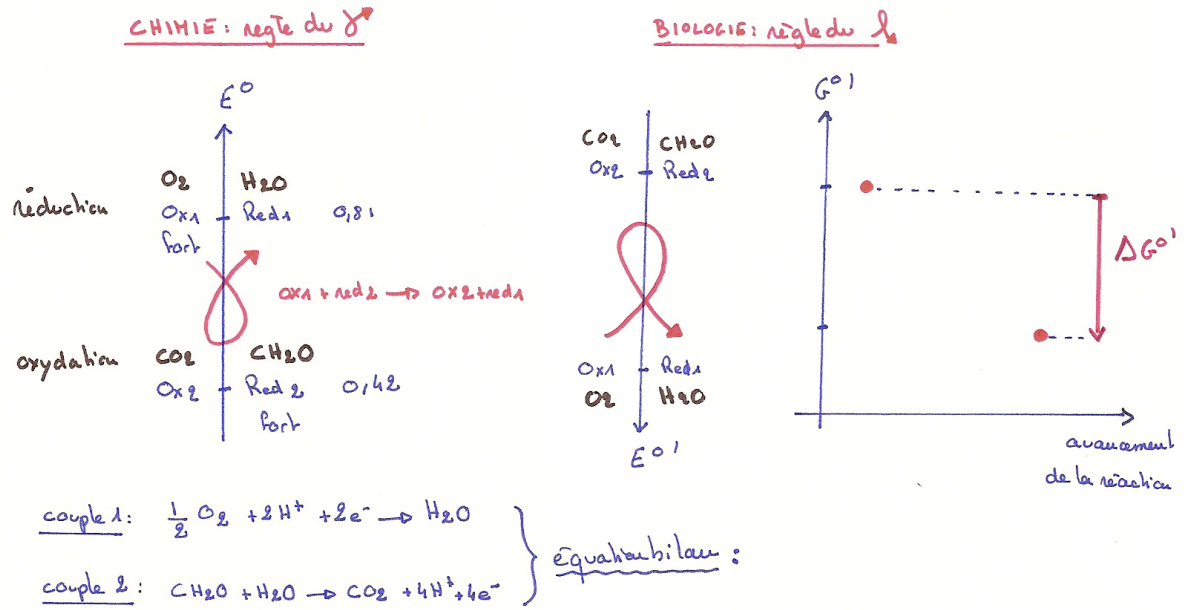 CHIMIE : règle du γ
E⁰
O₂ H₂O
réduction
Ox1 Red1 0,81
fort
ox1 + red2 → ox2 + red1
oxydation
CO₂ CH₂O
Ox2 Red2 0,42
fort
BIOLOGIE : règle du
CO₂ CH₂O
Ox2 Red2
Ox1 Red1
O₂ H₂O
E⁰'
G⁰'
ΔG⁰'
avancement
de la réaction
couple 1 : 1/2 O₂ + 2H⁺ + 2e⁻ → H₂O
couple 2 : CH₂O + H₂O → CO₂ + 4H⁺ + 4e⁻
équation bilan :